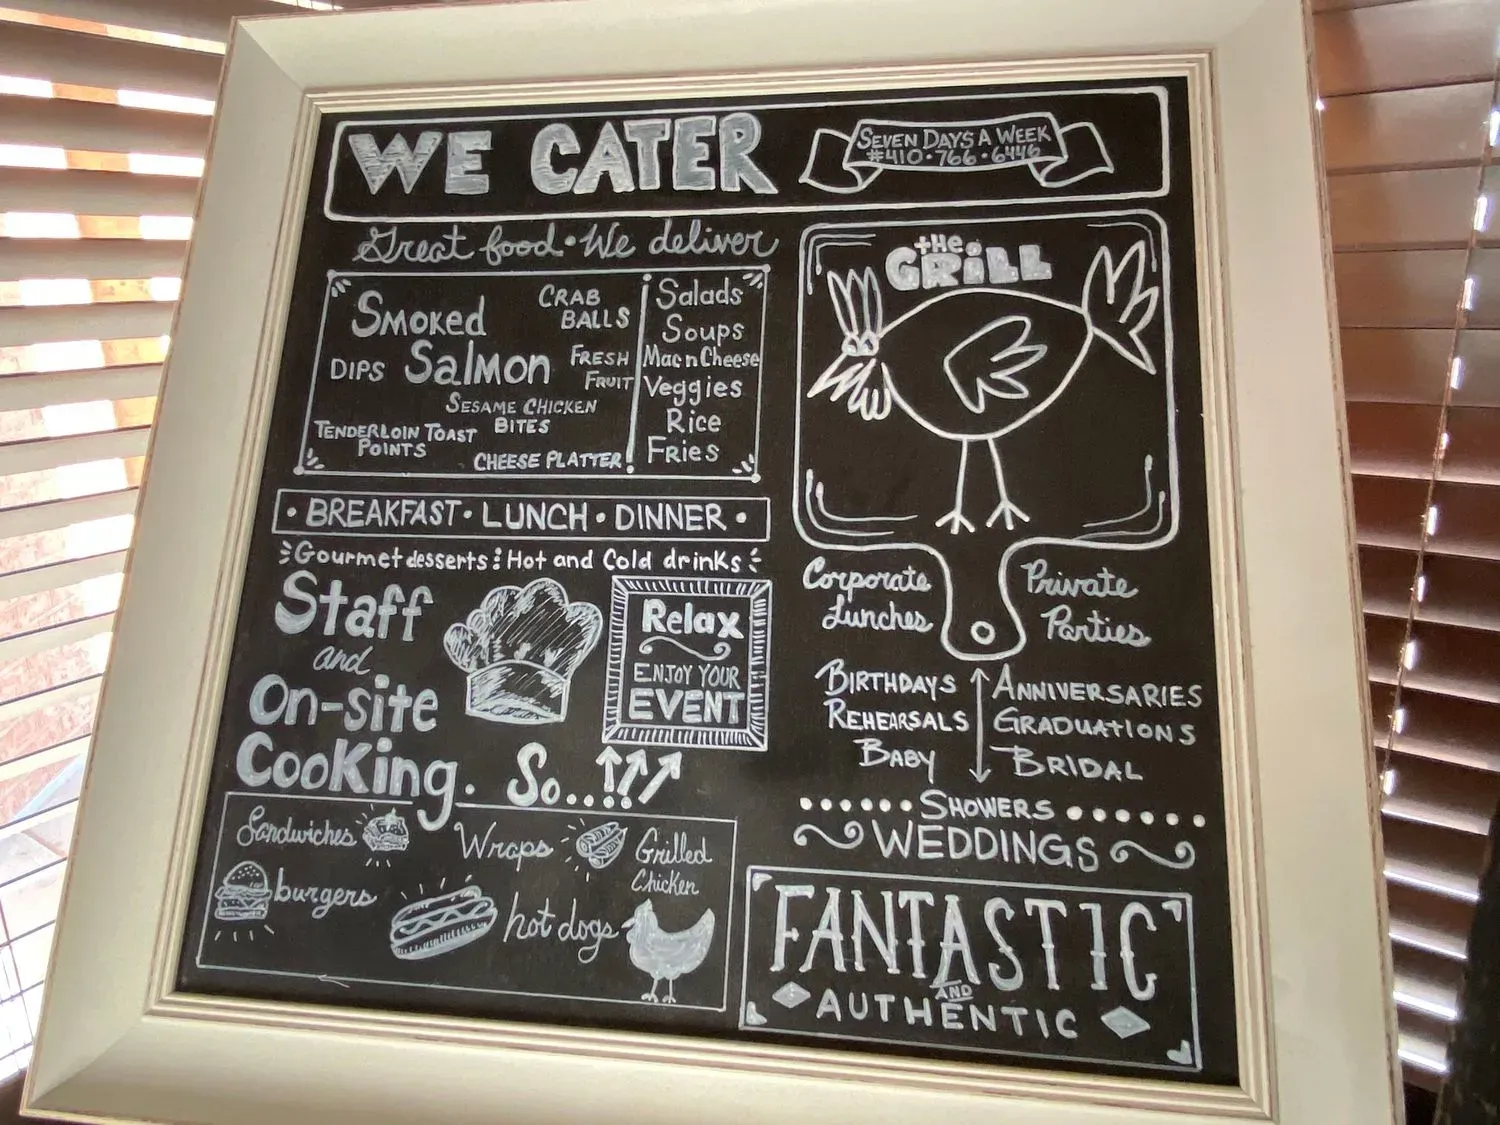 WE CATER
SEVEN DAYS A WEEK
#410·766·6446
Great food • We deliver
SMOKED
SALMON
CRAB
BALLS
DIPS
FRESH
FRUIT
SESAME CHICKEN
BITES
TENDERLOIN TOAST
POINTS
CHEESE PLATTER
Salads
Soups
Mac n Cheese
Veggies
Rice
Fries
the
GRiLL
• BREAKFAST • LUNCH • DINNER •
Gourmet desserts : Hot and Cold drinks
Staff
and
On-site
Cooking. So...
Relax
ENJOY YOUR
EVENT
Corporate
Lunches
Private
Parties
BIRTHDAYS
REHEARSALS
BABY
ANNIVERSARIES
GRADUATIONS
BRIDAL
SHOWERS
WEDDINGS
Sandwiches
Wraps
Grilled
Chicken
burgers
hot dogs
FANTASTIC
AND
AUTHENTIC